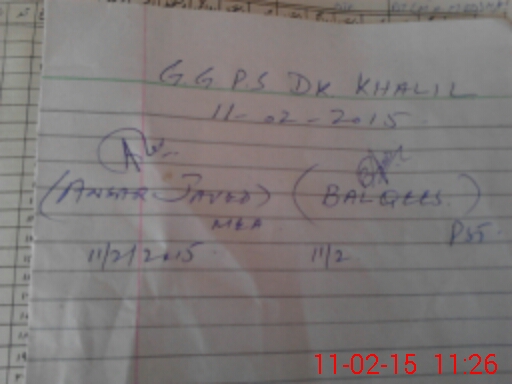 G.G.P.S DK KHALIL
11-02-2015
(ANSAR JAVED) (BALQEES)
MEA
PST.
11/2/2015 11/2
11-02-15 11:26